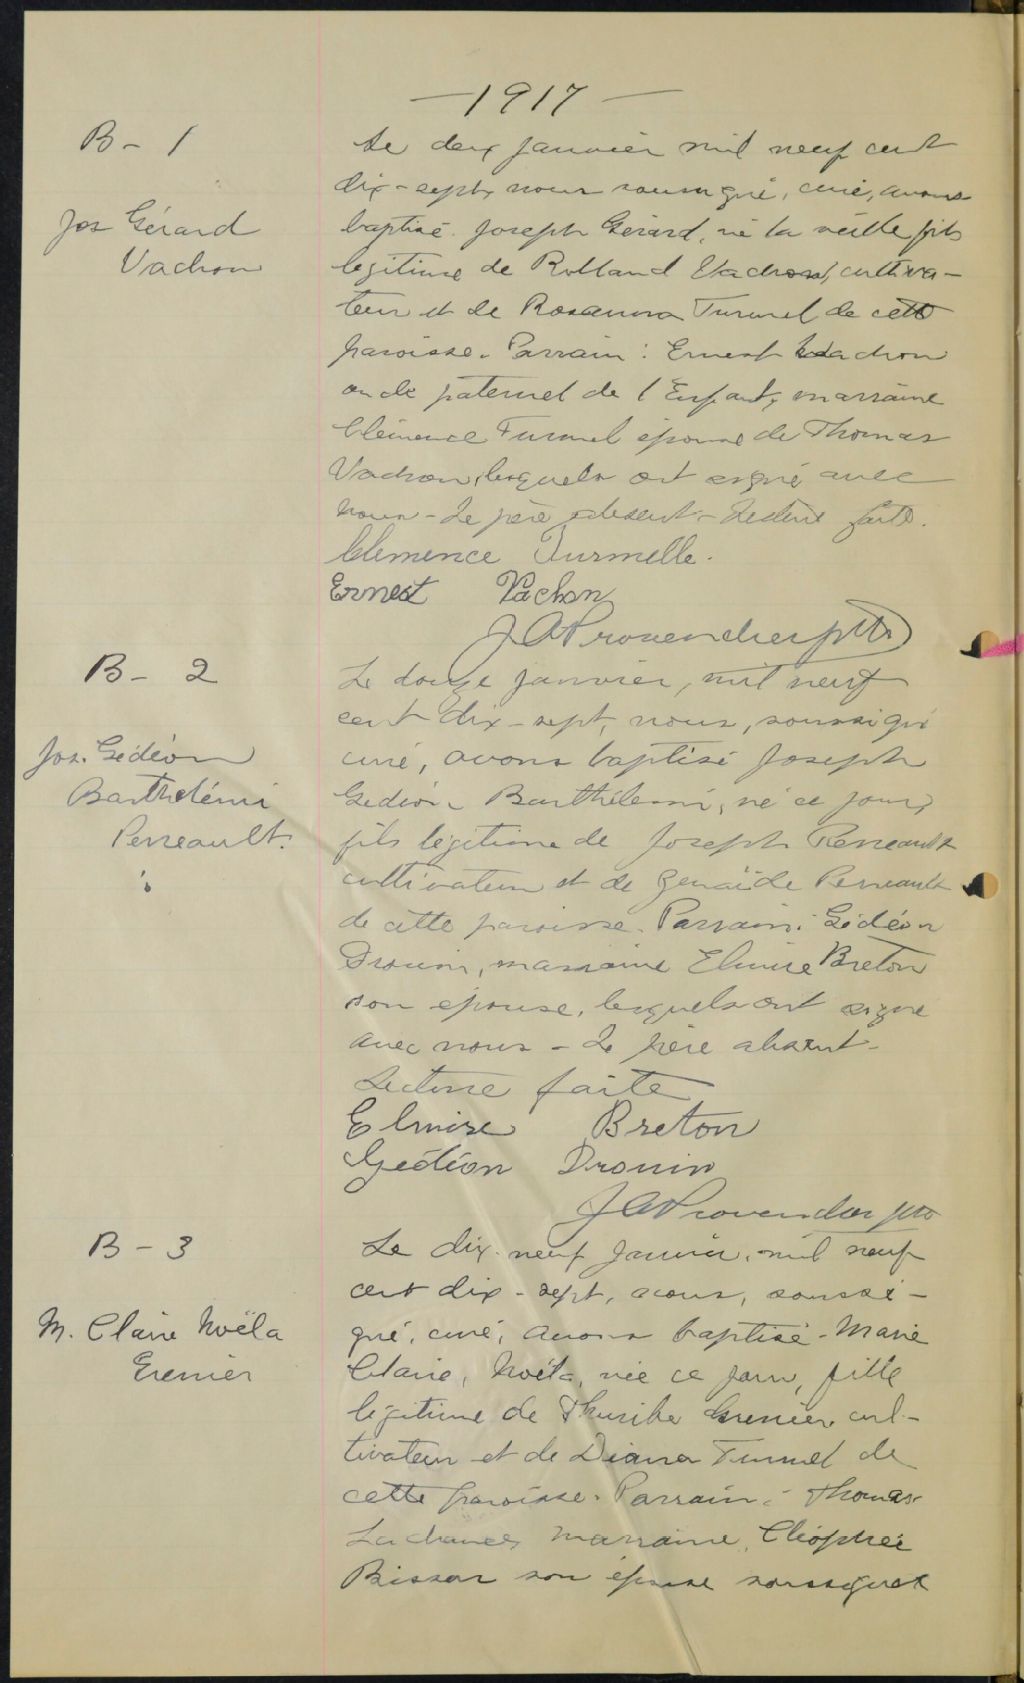 —1917—
B - 1
Jos Gérard
Vachon
Le deux janvier mil neuf cent
dix-sept, nous soussigné, curé, avons
baptisé Joseph Gérard, né la veille fils
légitime de Rolland Vachon, cultiva-
teur et de Rosanna Turmel de cette
paroisse. Parrain: Ernest Vachon
oncle paternel de l'Enfant, marraine
Clémence Turmel épouse de Thomas
Vachon, lesquels ont signé avec
nous - Le père présent - Lecture faite.
Clemence Turmelle.
Ernest Vachon
J A Provencher ptre
B - 2
Jos. Gédéon
Barthelémi
Perreault.
Le douze janvier, mil neuf
cent dix-sept, nous, soussigné
curé, avons baptisé Joseph
Gedéon Barthélemi, né ce jour,
fils légitime de Joseph Perreault
cultivateur et de Zénaïde Perreault
de cette paroisse. Parrain: Gédéon
Drouin, marraine Elmire Breton
son épouse, lesquels ont signé
avec nous - Le père absent -
Lecture faite
Elmire Breton
Gédéon Drouin
J A Provencher ptre
B - 3
M. Claire Noëla
Grenier
Le dix-neuf janvier, mil neuf
cent dix-sept, nous, soussi-
gné, curé, avons baptisé - Marie
Claire, Noëla, née ce jour, fille
légitime de Thuribe Grenier cul-
tivateur et de Diana Turmel de
cette paroisse. Parrain: Thomas
Lachance, marraine, Cléophée
Bisson son épouse soussignés